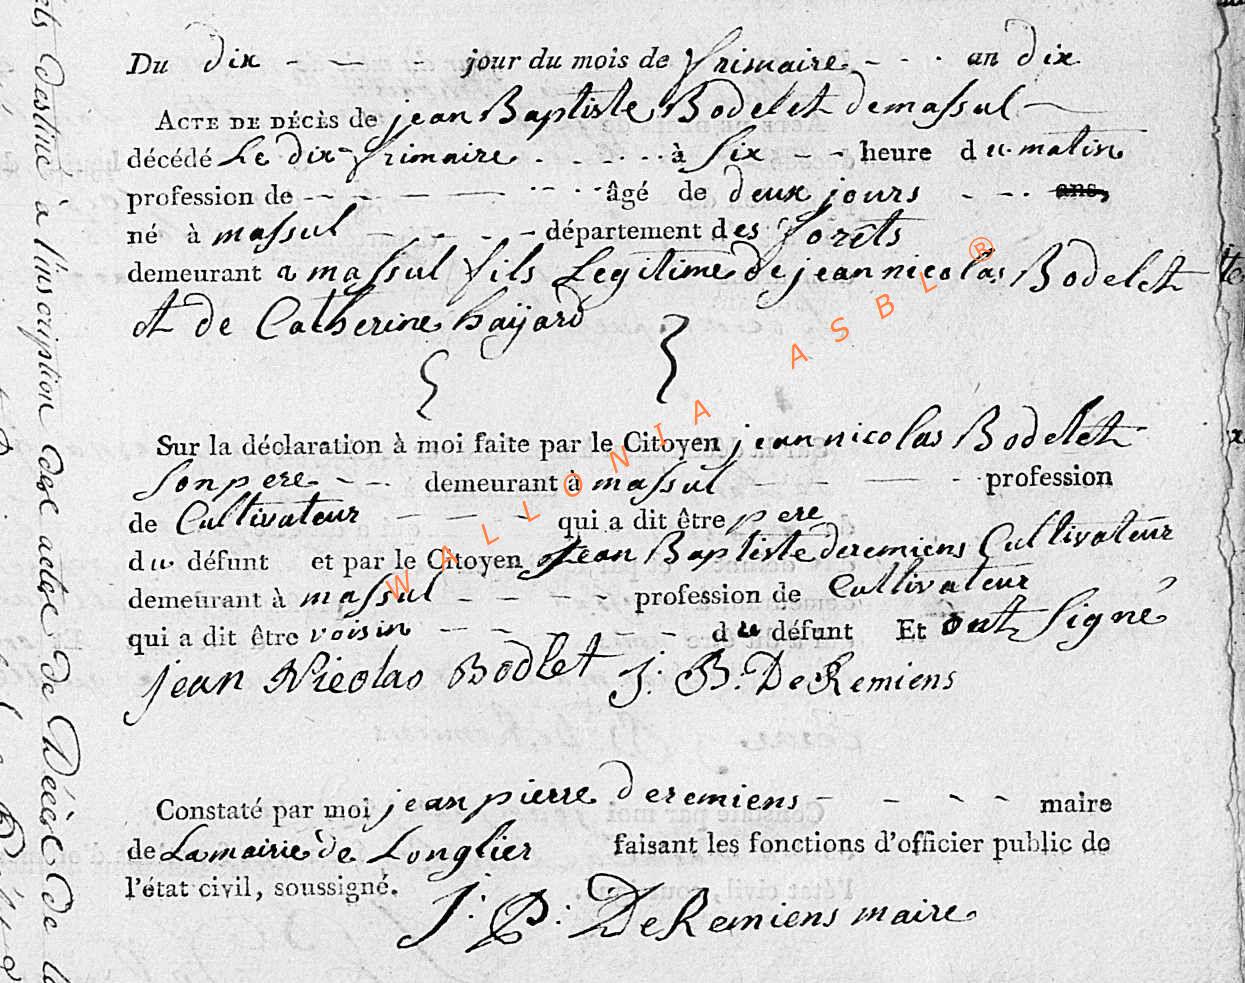 Du dix - - - jour du mois de frimaire - - - an dix
ACTE DE DÉCÈS de jean Baptiste Bodelet de massul
décédé Le dix frimaire - - - - - à six - - heure du matin
profession de - - - - - - - - âgé de deux jours - - - ans,
né à massul - - - - département des forêts
demeurant a massul fils Legitime de jean nicolas Bodelet
et de Catherine hayard
Sur la déclaration à moi faite par le Citoyen jean nicolas Bodelet
son pere - - - demeurant à massul - - - - profession
de Cultivateur - - - - qui a dit être pere
du défunt et par le Citoyen jean Baptiste deremiens Cultivateur
demeurant à massul - - - - profession de cultivateur
qui a dit être voisin - - - - - - du défunt Et ont signé
jean Nicolas Bodlet J. B. De Remiens
Constaté par moi jean pierre deremiens - - - - maire
de La mairie de Longlier faisant les fonctions d'officier public de
l'état civil, soussigné.
J. P. De Remiens maire
WALLONIA ASBL ®
destiné à l'inscription des actes de Décès de la